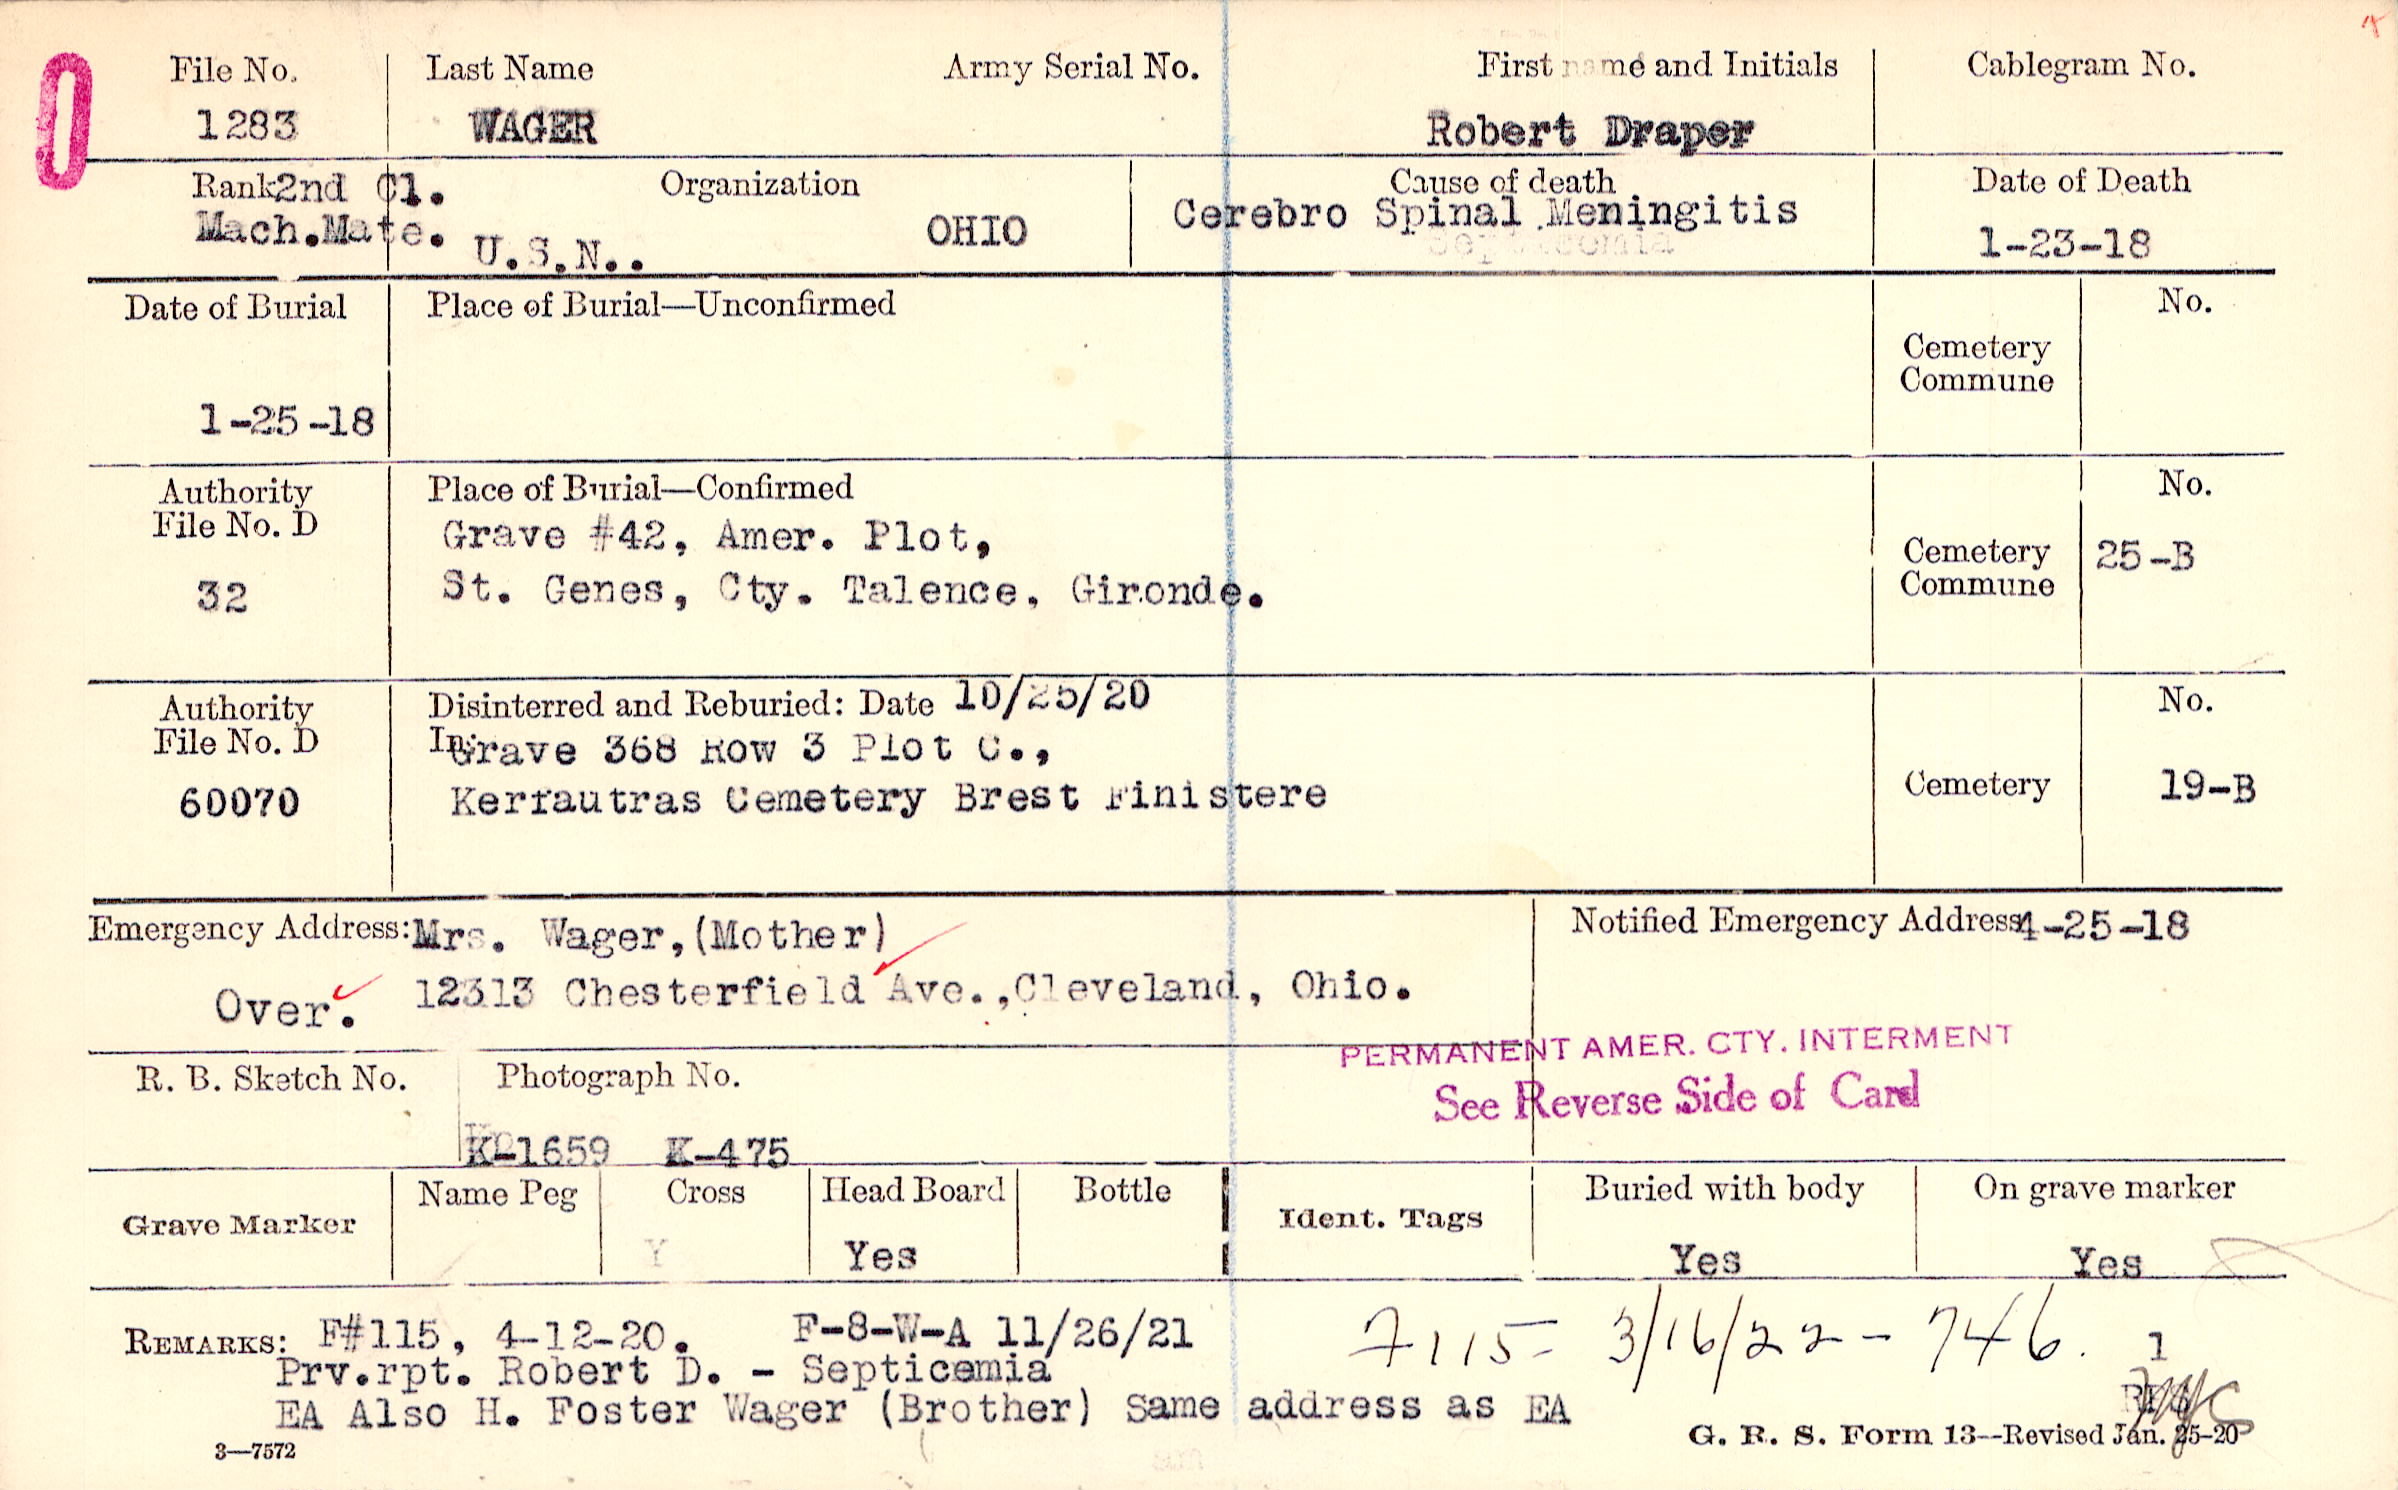 File No. Last Name Army Serial No. First name and Initials Cablegram No.
1283 WAGER Robert Draper
Rank 2nd Cl. Organization Cause of death Date of Death
Mach.Mate. U.S.N.. OHIO Cerebro Spinal Meningitis 1-23-18
Septicemia
Date of Burial Place of Burial—Unconfirmed No.
Cemetery
Commune
1-25-18
Authority Place of Burial—Confirmed No.
File No. D Grave #42, Amer. Plot,
Cemetery 25-B
32 St. Genes, Cty. Talence, Gironde. Commune
Authority Disinterred and Reburied: Date 10/25/20 No.
File No. D In: Grave 368 Row 3 Plot C.,
60070 Kerfautras Cemetery Brest Finistere Cemetery 19-B
Emergency Address: Mrs. Wager,(Mother) Notified Emergency Address 4-25-18
Over. 12313 Chesterfield Ave.,Cleveland, Ohio.
PERMANENT AMER. CTY. INTERMENT
See Reverse Side of Card
R. B. Sketch No. Photograph No.
K-1659 K-475
Grave Marker Name Peg Cross Head Board Bottle Ident. Tags Buried with body On grave marker
Y Yes Yes Yes
REMARKS: F#115, 4-12-20. F-8-W-A 11/26/21 7115- 3/16/22 - 746. 1
Prv.rpt. Robert D. - Septicemia
EA Also H. Foster Wager (Brother) Same address as EA
3—7572 G. R. S. Form 13—Revised Jan. 25-20